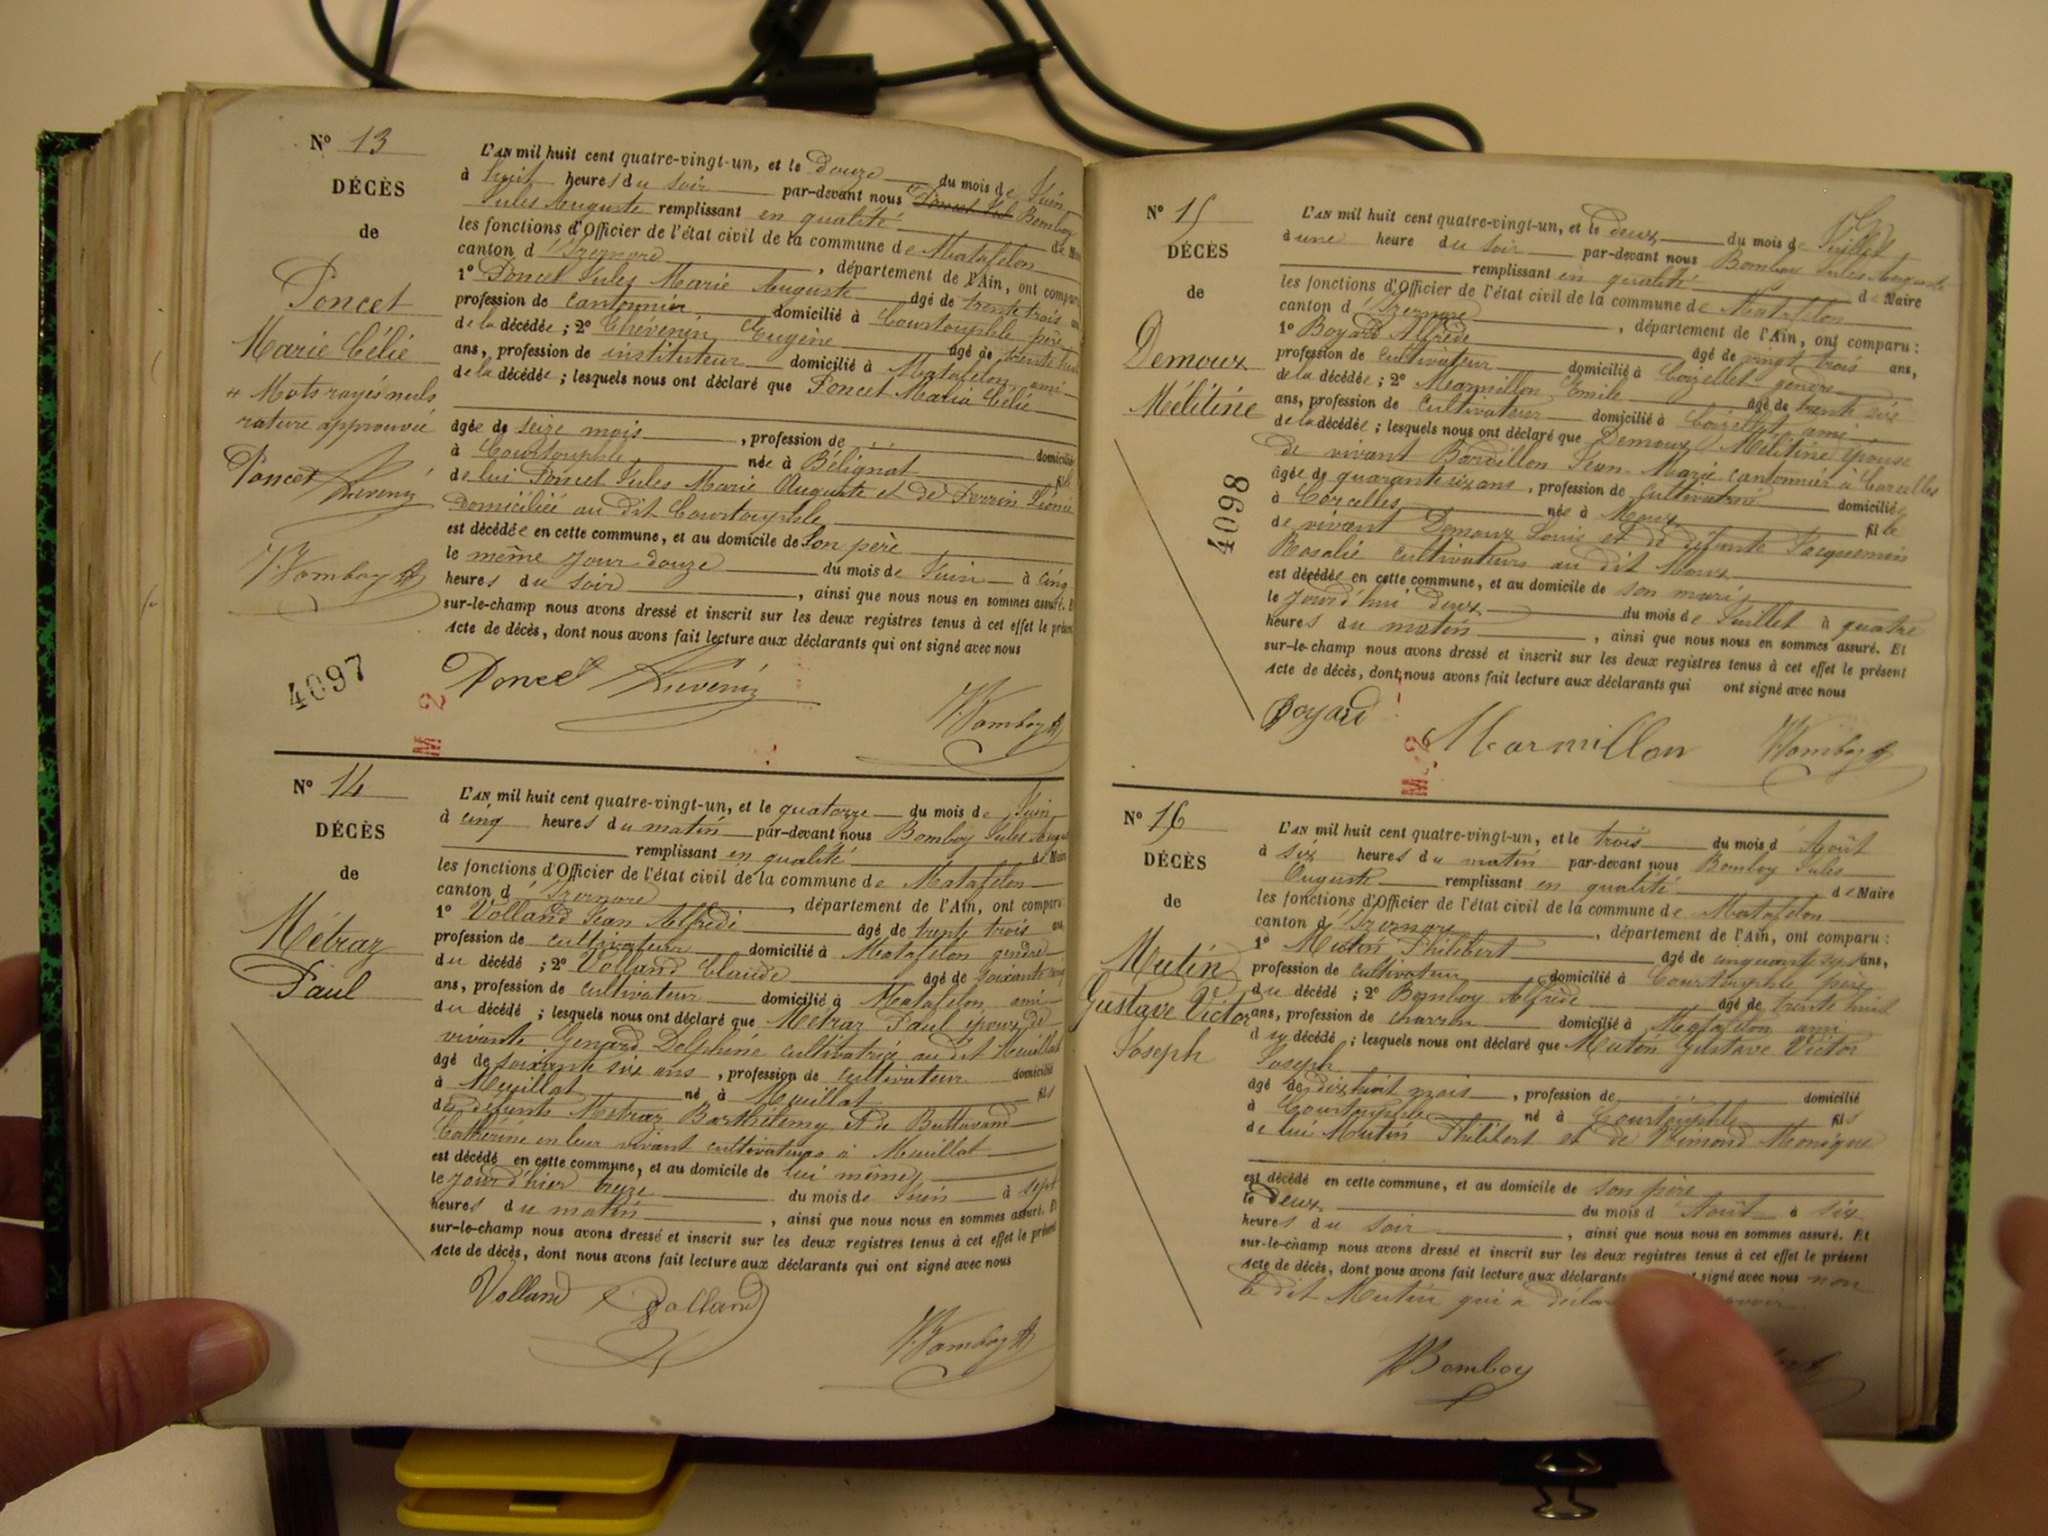 Nº 13
DÉCÈS
de
Poncet
Marie Célie
+ Mots rayés nuls
rature approuvée
Poncet
4097
L'AN mil huit cent quatre-vingt-un, et le Douze du mois de Juin
à huit heures du soir par-devant nous Bomboy
Jules Auguste remplissant en qualité de Maire
les fonctions d'Officier de l'état civil de la commune de Matafelon
canton d'Izernore, département de l'Ain, ont comparu
1º Poncet Jules Marie Auguste âgé de trente trois ans
profession de cantonnier domicilié à Courtouphle père
de la décédée ; 2º Thévenin Eugène âgé de
ans, profession de instituteur domicilié à Matafelon ami
de la décédée ; lesquels nous ont déclaré que Poncet Marie Célie
âgée de seize mois, profession de domicilié
à Courtouphle née à Bélignat fille
de lui Poncet Jules Marie Auguste et de Perrin
domiciliée au dit Courtouphle
est décédée en cette commune, et au domicile de son père
le même jour douze du mois de Juin à cinq
heures du soir, ainsi que nous nous en sommes assuré. Et
sur-le-champ nous avons dressé et inscrit sur les deux registres tenus à cet effet le présent
Acte de décès, dont nous avons fait lecture aux déclarants qui ont signé avec nous
Poncet
M 2
Nº 14
DÉCÈS
de
Métraz
Paul
L'AN mil huit cent quatre-vingt-un, et le quatorze du mois de Juin
à cinq heures du matin par-devant nous Bomboy Jules
remplissant en qualité de Maire
les fonctions d'Officier de l'état civil de la commune de Matafelon
canton d'Izernore, département de l'Ain, ont comparu
1º Volland Jean Alfred âgé de trente trois ans
profession de cultivateur domicilié à Matafelon gendre
du décédé ; 2º Volland Claude âgé de soixante
ans, profession de cultivateur domicilié à Matafelon ami
du décédé ; lesquels nous ont déclaré que Métraz Paul époux de
vivante Genard Delphine cultivatrice au dit Meuillat
âgé de soixante six ans, profession de cultivateur domicilié
à Meuillat né à Meuillat fils
des défunts Métraz Barthélemy et de Buttavand
Cathérine en leur vivant cultivateurs à Meuillat
est décédé en cette commune, et au domicile de lui même
le jour d'hier treize du mois de Juin à sept
heures du matin, ainsi que nous nous en sommes assuré. Et
sur-le-champ nous avons dressé et inscrit sur les deux registres tenus à cet effet le présent
Acte de décès, dont nous avons fait lecture aux déclarants qui ont signé avec nous
Volland Volland
Nº 15
DÉCÈS
de
Demoux
Mélitine
4098
L'AN mil huit cent quatre-vingt-un, et le deux du mois de Juillet
à une heure du soir par-devant nous Bomboy Jules Auguste
remplissant en qualité de Maire
les fonctions d'Officier de l'état civil de la commune de Matafelon
canton d'Izernore, département de l'Ain, ont comparu :
1º Boyard Alfred âgé de vingt trois ans,
profession de cultivateur domicilié à Coizellet gendre
de la décédée ; 2º Marmillon Emile âgé de trente six
ans, profession de cultivateur domicilié à Coizellet ami
de la décédée ; lesquels nous ont déclaré que Demoux Mélitine épouse
de vivant Bordillon Jean Marie cantonnier à Corcelles
âgée de quarante six ans, profession de cultivatrice domiciliée
à Corcelles née à fille
de vivant Demoux Louis et de défunte Jacquemin
Rosalie cultivateurs au dit
est décédée en cette commune, et au domicile de son mari
le jourd'hui deux du mois de Juillet à quatre
heures du matin, ainsi que nous nous en sommes assuré. Et
sur-le-champ nous avons dressé et inscrit sur les deux registres tenus à cet effet le présent
Acte de décès, dont nous avons fait lecture aux déclarants qui ont signé avec nous
Boyard Marmillon
M 2
Nº 16
DÉCÈS
de
Mutin
Gustave Victor
Joseph
L'AN mil huit cent quatre-vingt-un, et le trois du mois d'Août
à six heures du matin par-devant nous Bomboy Jules
Auguste remplissant en qualité de Maire
les fonctions d'Officier de l'état civil de la commune de Matafelon
canton d'Izernore, département de l'Ain, ont comparu :
1º Mutin Philibert âgé de cinquante sept ans,
profession de cultivateur domicilié à Courtouphle père
du décédé ; 2º Bomboy Alfred âgé de trente huit
ans, profession de charron domicilié à Matafelon ami
du décédé ; lesquels nous ont déclaré que Mutin Gustave Victor
Joseph
âgé de dix huit mois, profession de domicilié
à Courtouphle né à Courtouphle fils
de lui Mutin Philibert et de Monique
est décédé en cette commune, et au domicile de son père
le Deux du mois d'Août à six
heures du soir, ainsi que nous nous en sommes assuré. Et
sur-le-champ nous avons dressé et inscrit sur les deux registres tenus à cet effet le présent
Acte de décès, dont nous avons fait lecture aux déclarants signé avec nous non
le dit Mutin qui a
Bomboy